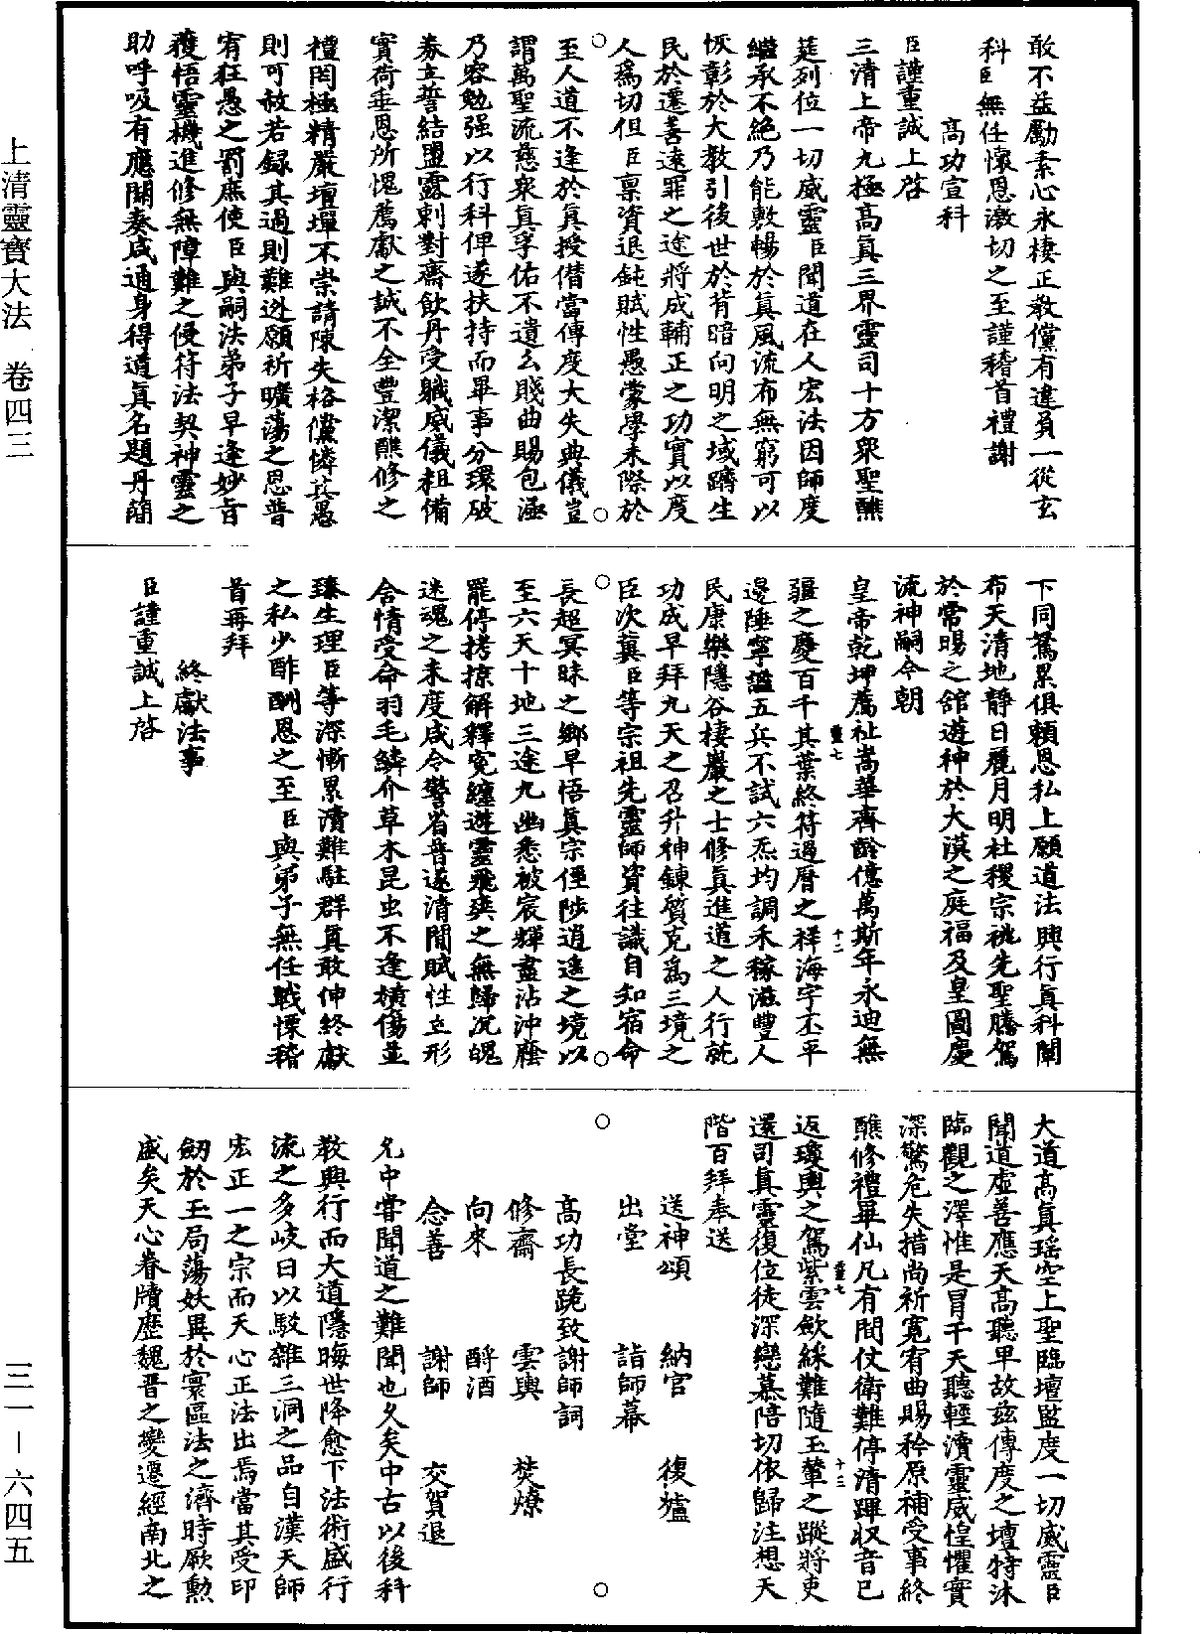 上清靈寶大法 卷四三
三一－六四五
敢不益勵素心永棲正教儻有違負一從玄
科臣無任懷恩激切之至謹稽首禮謝
高功宣科
臣謹重誠上啓
三清上帝九極高真三界靈司十方衆聖醮
筵列位一切威靈臣聞道在人宏法因師度
繼承不絕乃能敷暢於真風流布無窮可以
恢彰於大教引後世於背暗向明之域躋生
民於遷善遠罪之途將成輔正之功實以度
人爲切但臣稟資退鈍賦性愚蒙學未際於
至人道不逢於真授僭當傳度大失典儀豈
謂萬聖流慈衆真孚佑不遺幺賤曲賜包涵
乃容勉强以行科俾遂扶持而畢事分環破
券立誓結盟露刺對齋飲丹受職威儀粗備
實荷垂恩所愧薦獻之誠不全豐潔醮修之
禮罔極精嚴壇墠不崇請陳失格儻憐其愚
則可赦若録其過則難迯願祈曠蕩之恩普
宥狂愚之罰庶使臣與嗣法弟子早逢妙旨
穫悟靈機進修無障難之侵符法契神靈之
助呼吸有應關奏咸通身得道真名題丹簡
下同駑累俱賴恩私上願道法興行真科闡
布天清地靜日麗月明社稷宗祧先聖騰駕
於常暘之舘遊神於大漠之庭福及皇圖慶
流神嗣今朝
皇帝乾坤薦祉嵩華齊齡億萬斯年永迪無
疆之慶百千其葉終符過曆之祥海宇丕平
邊陲寧謐五兵不試六炁均調禾稼滋豐人
民康樂隱谷棲巖之士修真進道之人行就
功成早拜九天之召升神鍊質克爲三境之
臣次冀臣等宗祖先靈師資往識自知宿命
長超冥昧之鄉早悟真宗徑陟逍遥之境以
至六天十地三途九幽悉被宸輝盡沾沖廕
罷停拷掠解釋寃纏遊靈飛爽之無歸沉魄
迷魂之未度咸令警省普遂清閒賦性立形
含情受命羽毛鱗介草木昆虫不逢橫傷並
臻生理臣等深慚累瀆難駐群真敢伸終獻
之私少酢酬恩之至臣與弟子無任戰慄稽
首再拜
終獻法事
臣謹重誠上啓
大道高真瑶空上聖臨壇監度一切威靈臣
聞道虛善應天高聽卑故茲傳度之壇特沐
臨觀之澤惟是冒干天聽輕瀆靈威惶懼實
深驚危失措尚祈寬宥曲賜矜原補受事終
醮修禮畢仙凡有間仗衛難停清蹕収音已
返瓊輿之駕紫雲歛綵難隨玉輦之蹤將吏
還司真靈復位徒深戀慕陪切依歸注想天
階百拜奉送
送神頌 納官 復爐
出堂 詣師幕
高功長跪致謝師詞
修齋 雲輿 焚燎
向來 酹酒
念善 謝師 交賀退
允中嘗聞道之難聞也久矣中古以後科
教興行而大道隱晦世降愈下法術盛行
流之多岐日以駁雜三洞之品自漢天師
宏正一之宗而天心正法出焉當其受印
劒於玉局蕩妖異於寰區法之濟時厥勲
盛矣天心眷牘歷魏晋之變遷經南北之